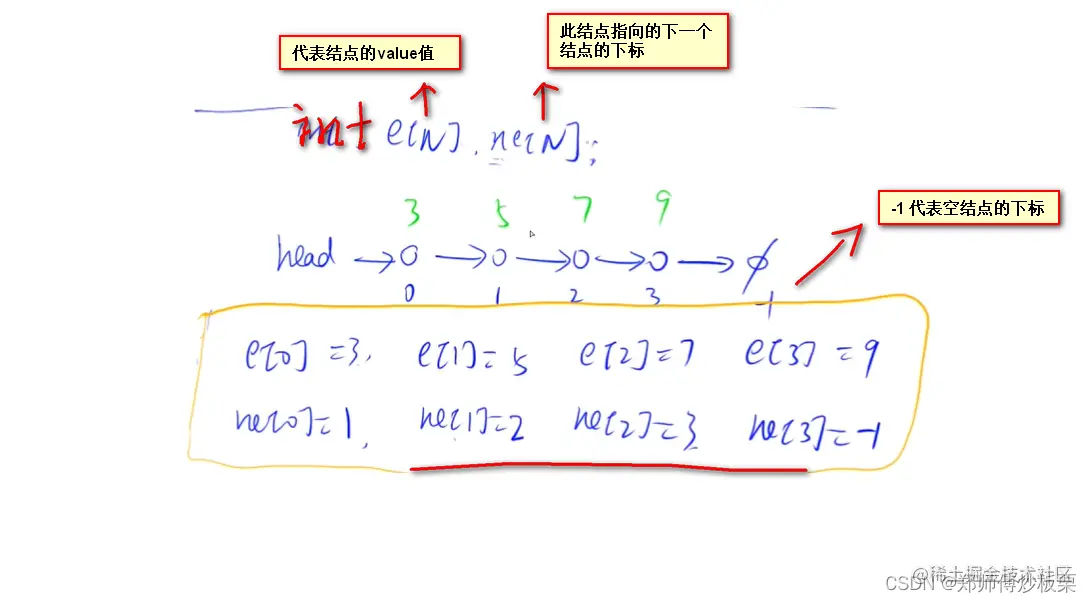 代表结点的value值
此结点指向的下一个
结点的下标
int e[N], ne[N];
3 5 7 9
-1 代表空结点的下标
head → 0 → 0 → 0 → 0 → ∅
0 1 2 3 -1
e[0]=3, e[1]=5 e[2]=7 e[3]=9
ne[0]=1, ne[1]=2 ne[2]=3 ne[3]=-1
@稀土掘金技术社区
CSDN @郑师傅炒板栗